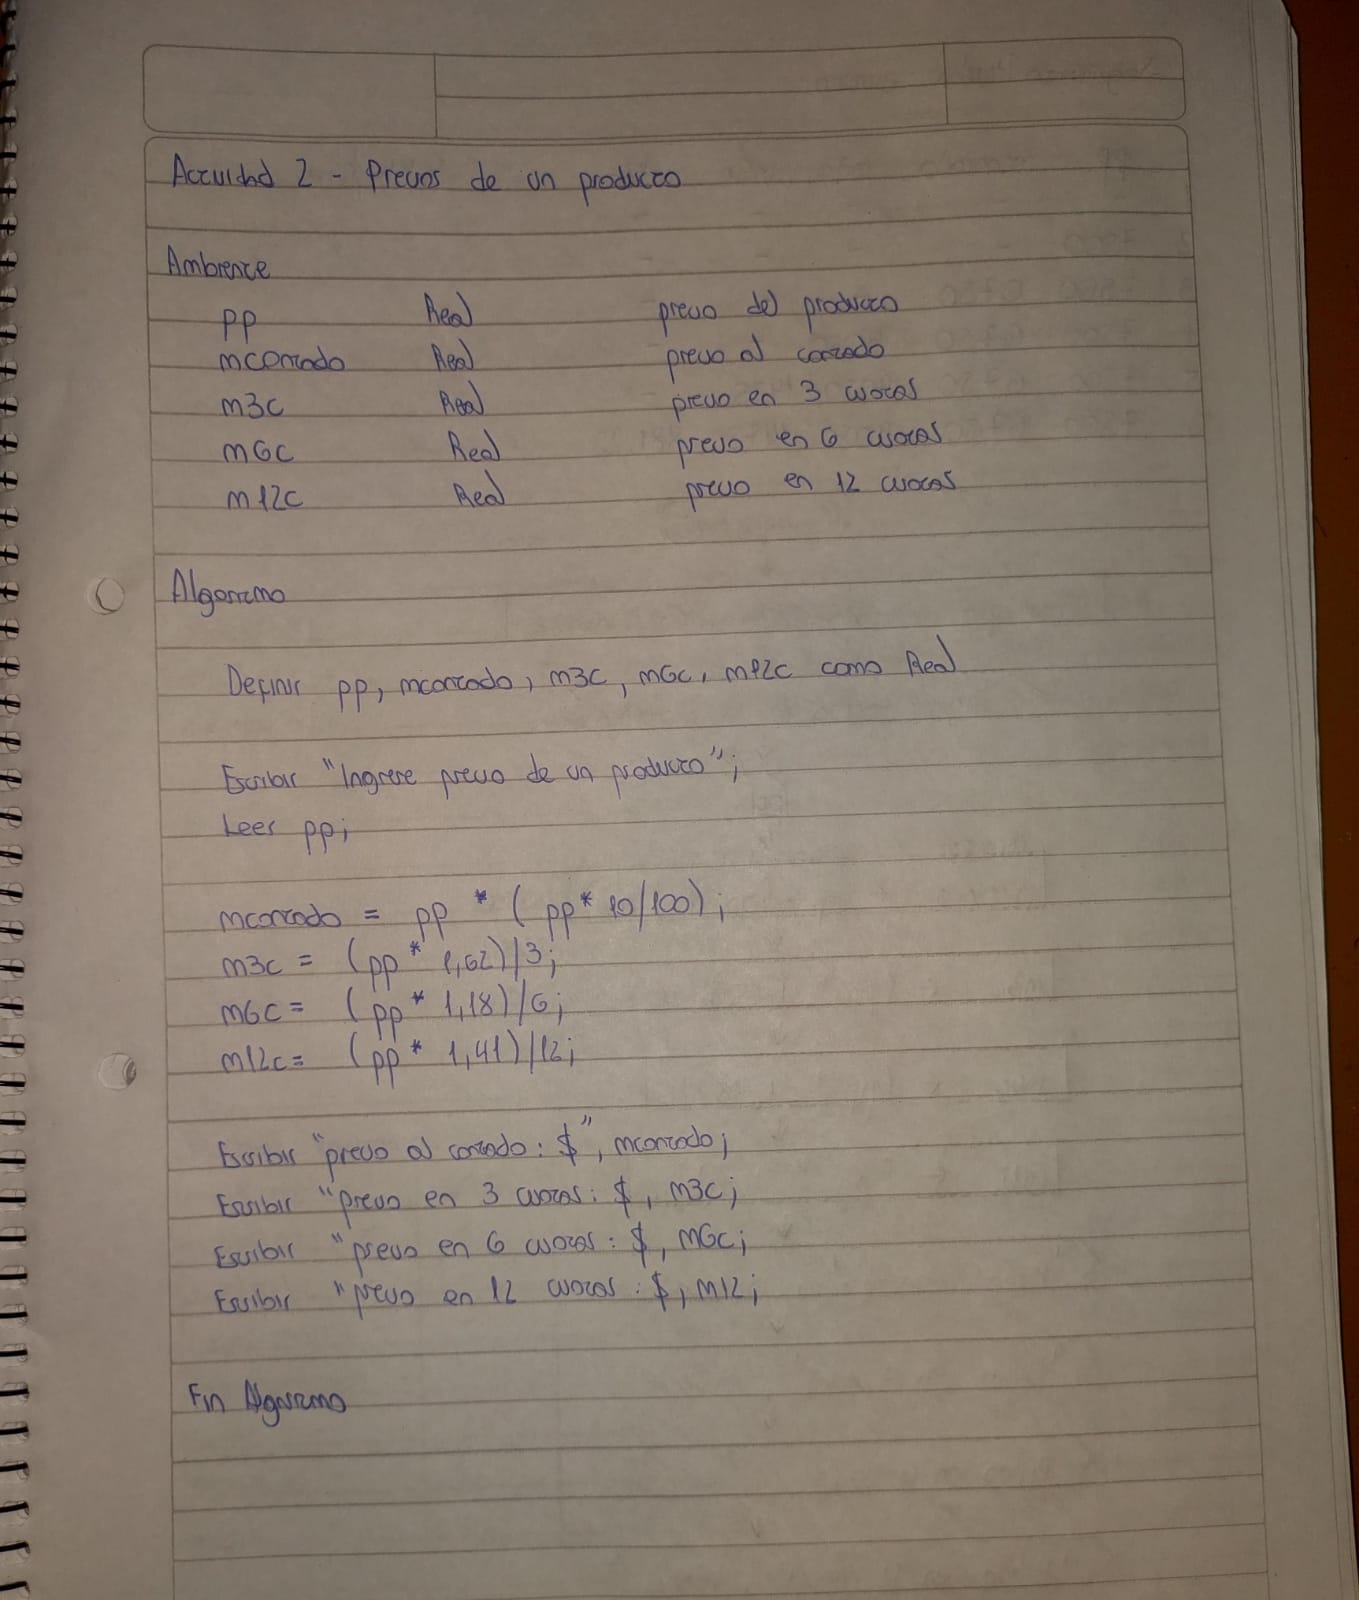 Actividad 2 - Precios de un producto
Ambiente
pp Real precio del producto
mcontado Real precio al contado
m3c Real precio en 3 cuotas
m6c Real precio en 6 cuotas
m12c Real precio en 12 cuotas
Algoritmo
Definir pp, mcontado, m3c, m6c, m12c como Real
Escribir "Ingrese precio de un producto";
Leer pp;
mcontado = pp * (pp * 10/100);
m3c = (pp * 1,02)/3;
m6c = (pp * 1,18)/6;
m12c = (pp * 1,41)/12;
Escribir "precio al contado: $", mcontado;
Escribir "precio en 3 cuotas: $, m3c;
Escribir "precio en 6 cuotas: $, m6c;
Escribir "precio en 12 cuotas: $, m12;
Fin Algoritmo